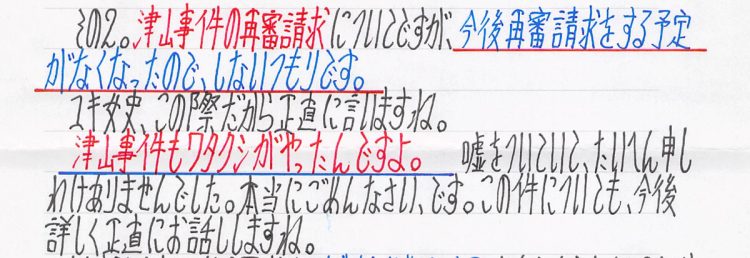 その2。津山事件の再審請求についてですが、今後再審請求をする予定
がなくなったので、しないつもりです。
ユキ女史、この際だから正直に言いますね。
津山事件もワタクシがやったんですよ。 嘘をついていて、たいへん申し
わけありませんでした。本当にごめんなさい、です。この件についても、今後
詳しく正直にお話ししますね。